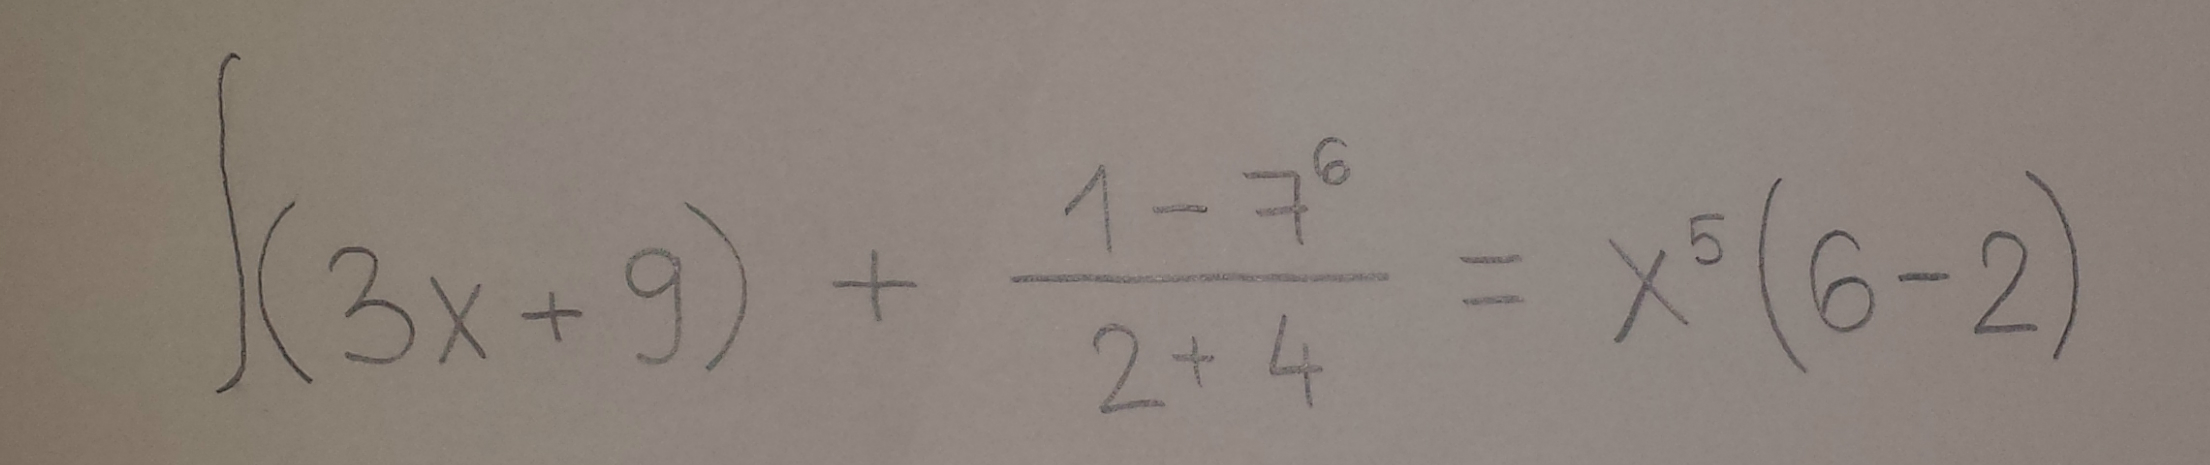 ∫(3x+9) + \frac{1-7^6}{2+4} = x^5(6-2)